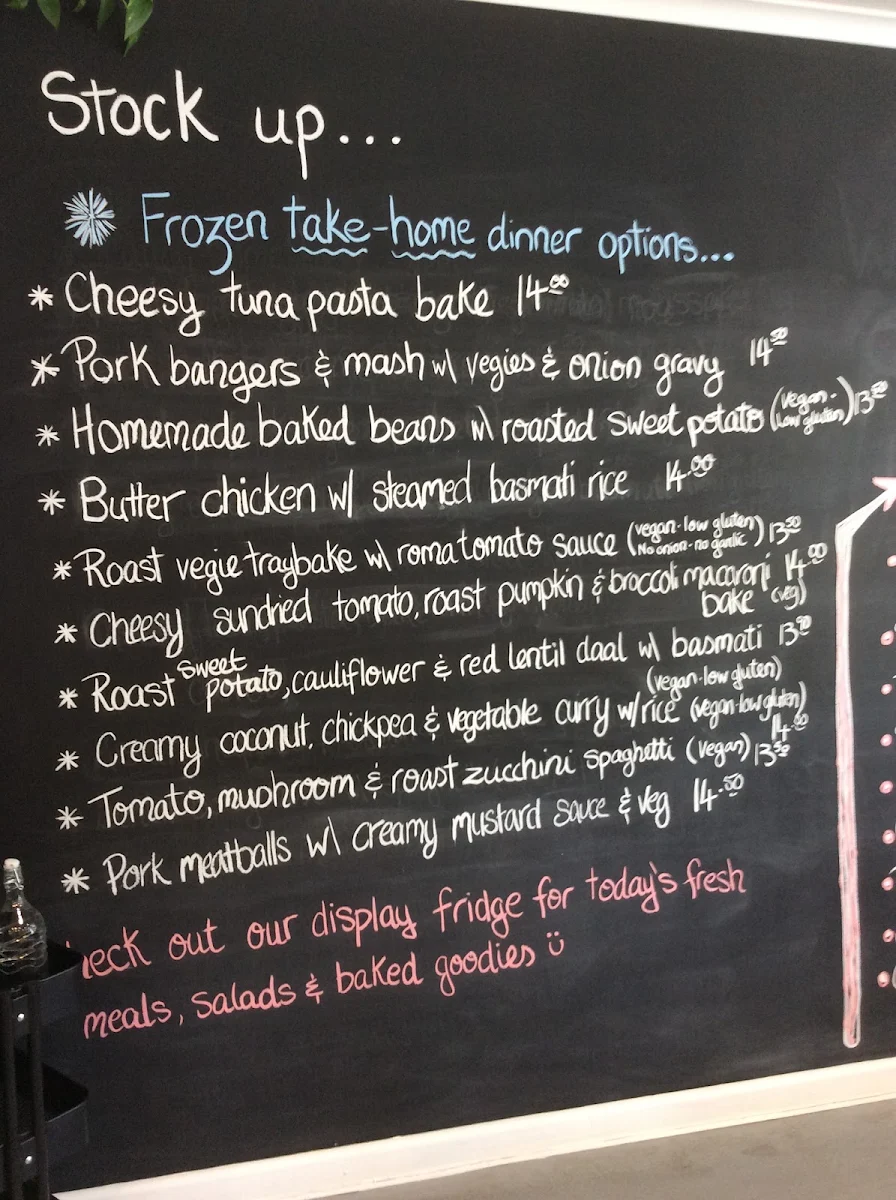 Stock up...
Frozen take-home dinner options...
* Cheesy tuna pasta bake 14.00
* Pork bangers & mash w/ vegies & onion gravy 14.50
* Homemade baked beans w/ roasted sweet potato (vegan - low gluten) 13.50
* Butter chicken w/ steamed basmati rice 14.00
* Roast vegie traybake w/ roma tomato sauce (vegan - low gluten) 13.50
No onion - no garlic
* Cheesy sundried tomato, roast pumpkin & broccoli macaroni 14.00
bake (veg)
* Roast sweet potato, cauliflower & red lentil daal w/ basmati 13.90
(vegan - low gluten)
* Creamy coconut, chickpea & vegetable curry w/ rice (vegan - low gluten)
14.00
* Tomato, mushroom & roast zucchini spaghetti (vegan) 13.50
* Pork meatballs w/ creamy mustard sauce & veg 14.50
heck out our display fridge for today's fresh
meals, salads & baked goodies ü